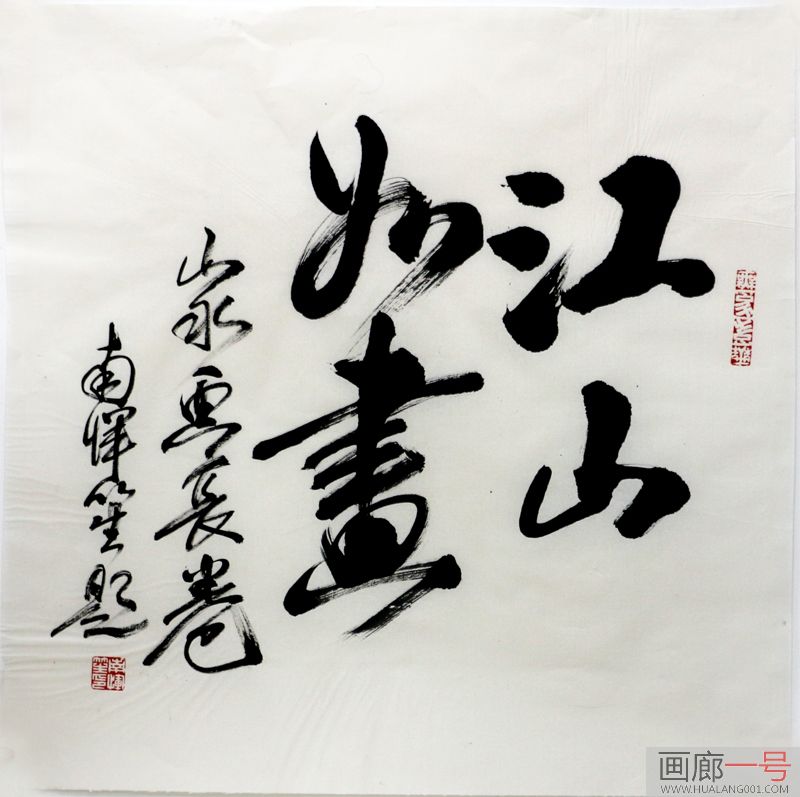 江山
如畫
山水画長卷
南恽笙題
画廊一号
WWW.HUALANG001.COM